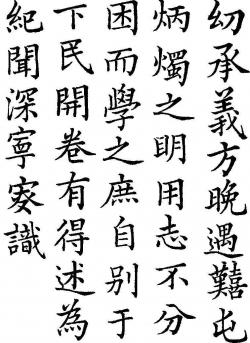 幼承義方晚遇囏屯
炳燭之明用志不分
困而學之庶自别于
下民開卷有得述為
紀聞深寧叜識